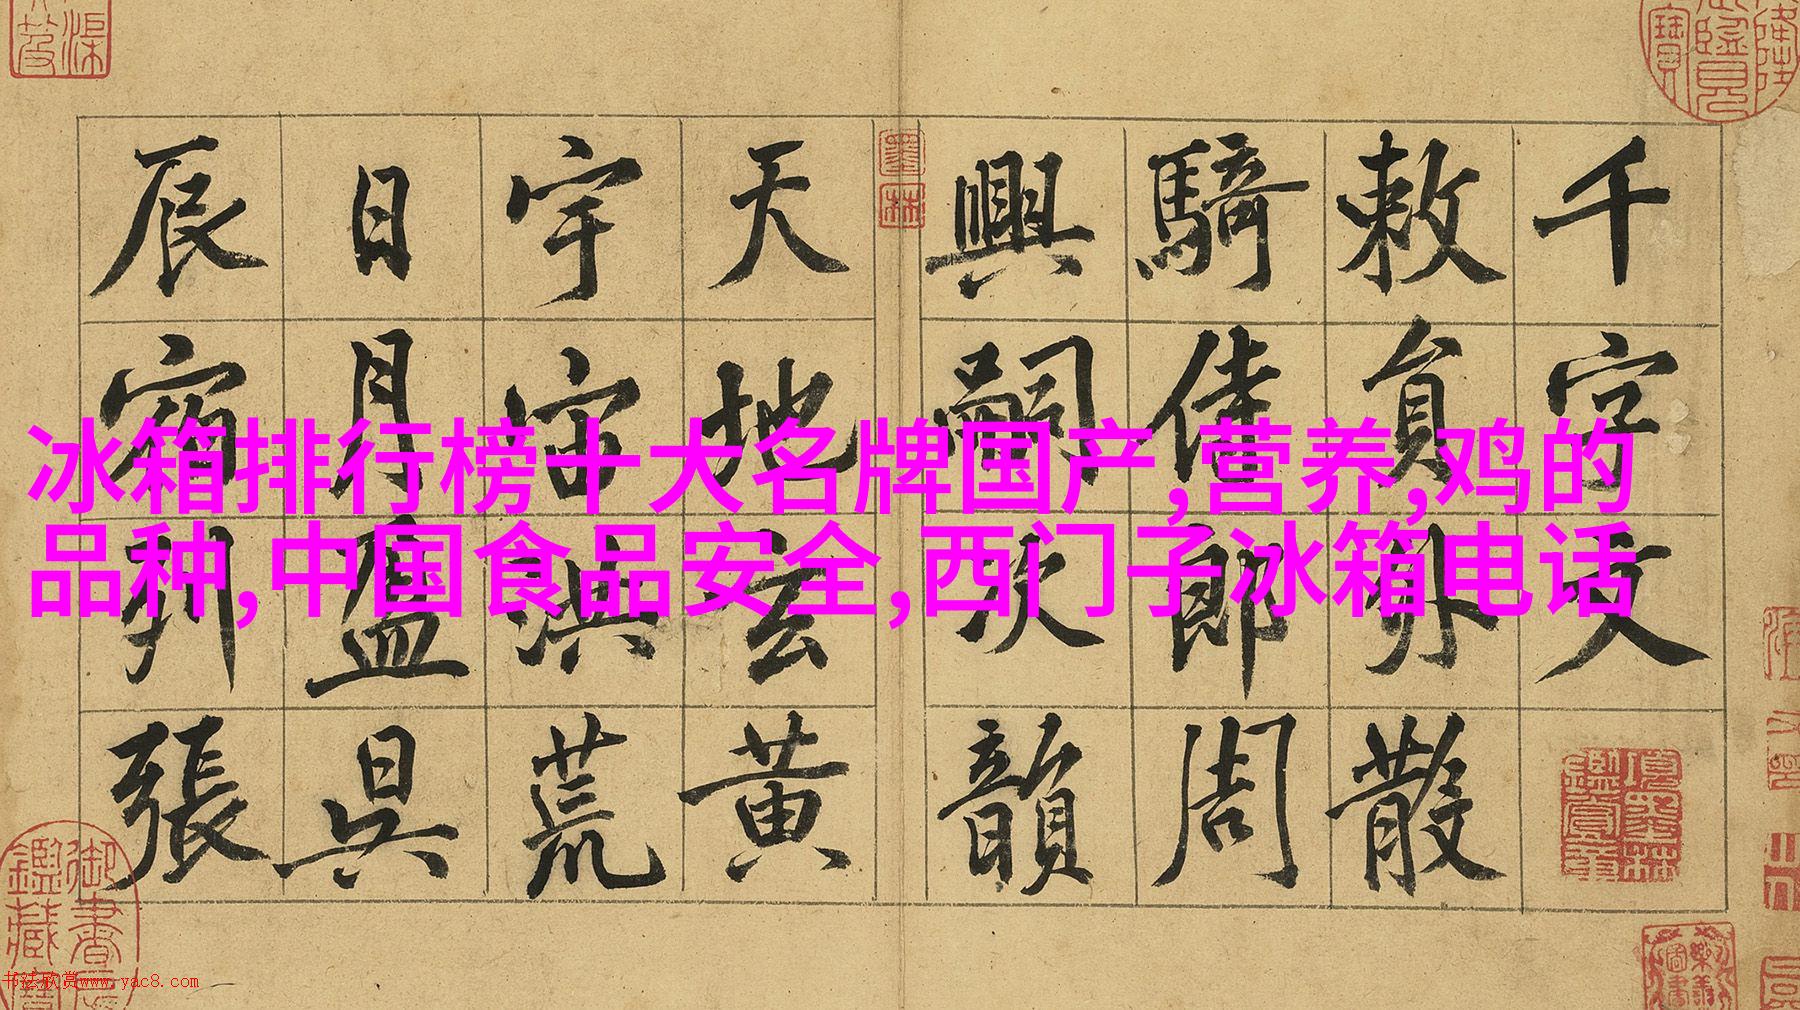 冰箱排行榜十大名牌国产,营养,鸡的
品种,中国食品安全,西门子冰箱电话
千字文
敕員外散
騎侍郎周
興嗣次韻
天地玄黄
宇宙洪荒
日月盈昃
辰宿列張
墨林
书法欣赏www.yac8.com